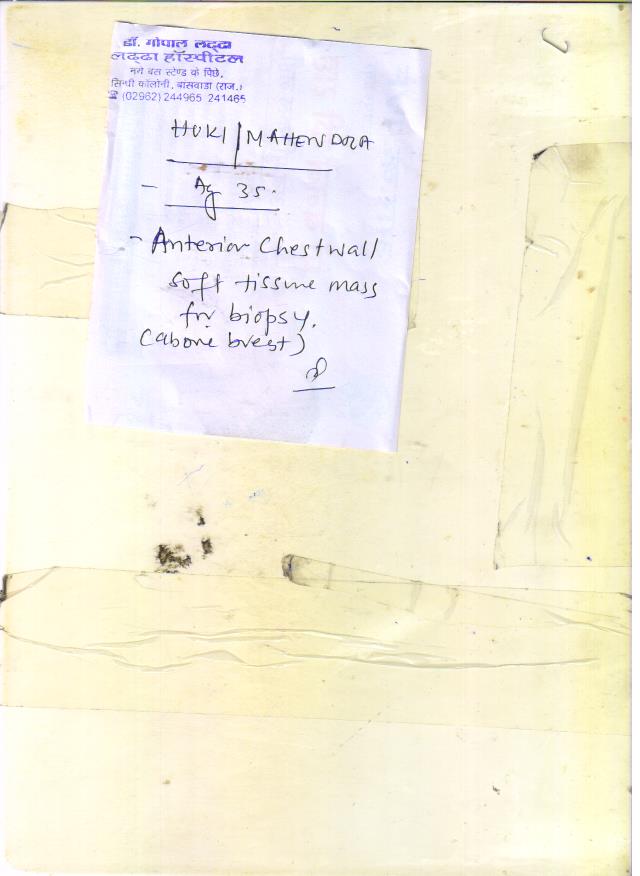 डॉ. गोपाल लद्ढा
लद्ढा हॉस्पीटल
नये बस स्टेण्ड के पिछे,
सिन्धी कॉलोनी, बासवाडा (राज.)
☎ (02962) 244965 241465
HUKI / MAHENDRA
- Ag 35.
- Anterior Chestwall
soft tissue mass
for biopsy.
(above brest)